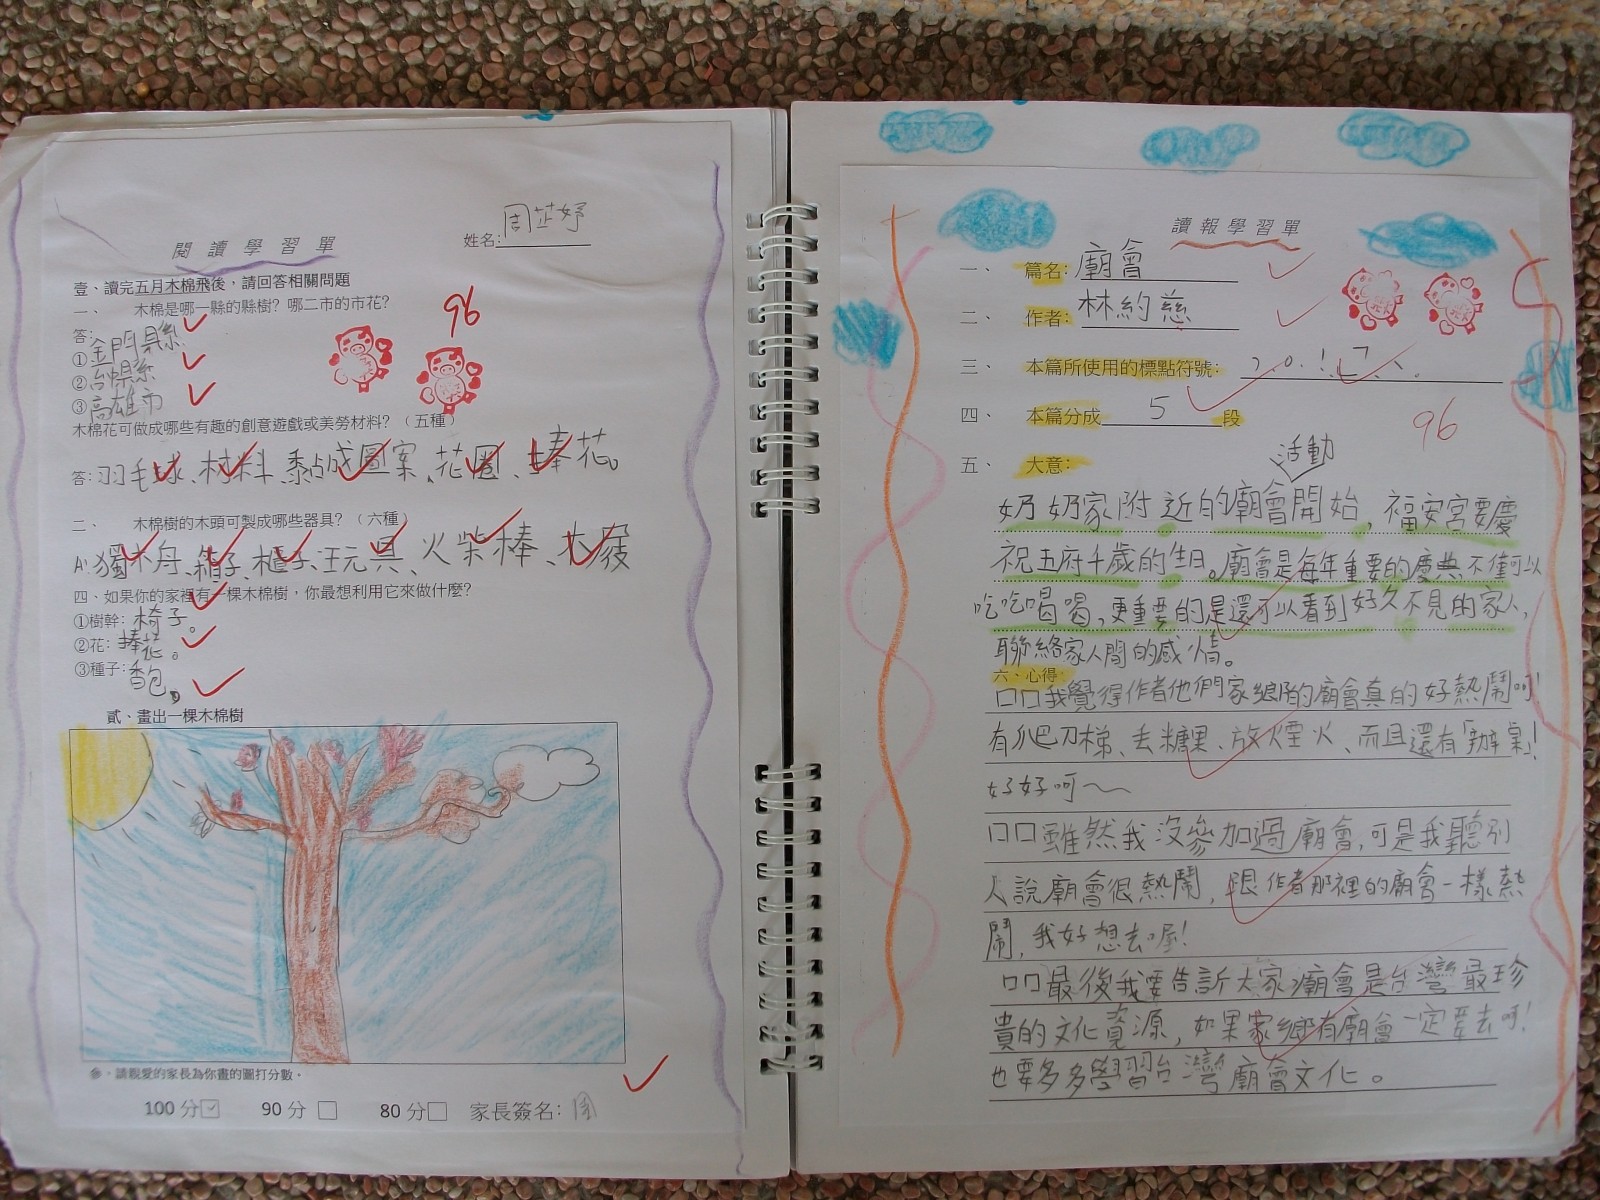 閱讀學習單
姓名:周芷妤
壹、讀完五月木棉飛後，請回答相關問題
一、 木棉是哪一縣的縣樹？哪二市的市花？
96
答:
①金門縣
②台縣
③高雄市
木棉花可做成哪些有趣的創意遊戲或美勞材料？（五種）
答:羽毛球、材料、黏成圖案、花圈、捧花。
二、 木棉樹的木頭可製成哪些器具？（六種）
A:獨木舟、箱子、櫃子、玩具、火柴棒、
四、如果你的家裡有一棵木棉樹，你最想利用它來做什麼？
①樹幹:椅子。
②花:捧花。
③種子:香包。
貳、畫出一棵木棉樹
參、請親愛的家長為你畫的圖打分數。
100分 90分 80分 家長簽名:
讀報學習單
一、 篇名:廟會
二、 作者:林約慈
三、 本篇所使用的標點符號:
四、 本篇分成5段
96
五、 大意:
活動
奶奶家附近的廟會開始，福安宮要慶
祝五府千歲的生日。廟會是每年重要的慶典不僅可以
吃吃喝喝，更重要的是還可以看到好久不見的家人，
聯絡家人間的感情。
六、心得:
口口我覺得作者他們家鄉的廟會真的好熱鬧呵！
有爬刀梯、丟糖果、放煙火、而且還有「辦桌」！
好好呵～
口口雖然我沒參加過廟會，可是我聽別
人說廟會很熱鬧，跟作者那裡的廟會一樣熱
鬧，我好想去喔！
口口最後我要告訴大家廟會是台灣最珍
貴的文化資源，如果家鄉有廟會一定要去呵！
也要多多學習台灣廟會文化。